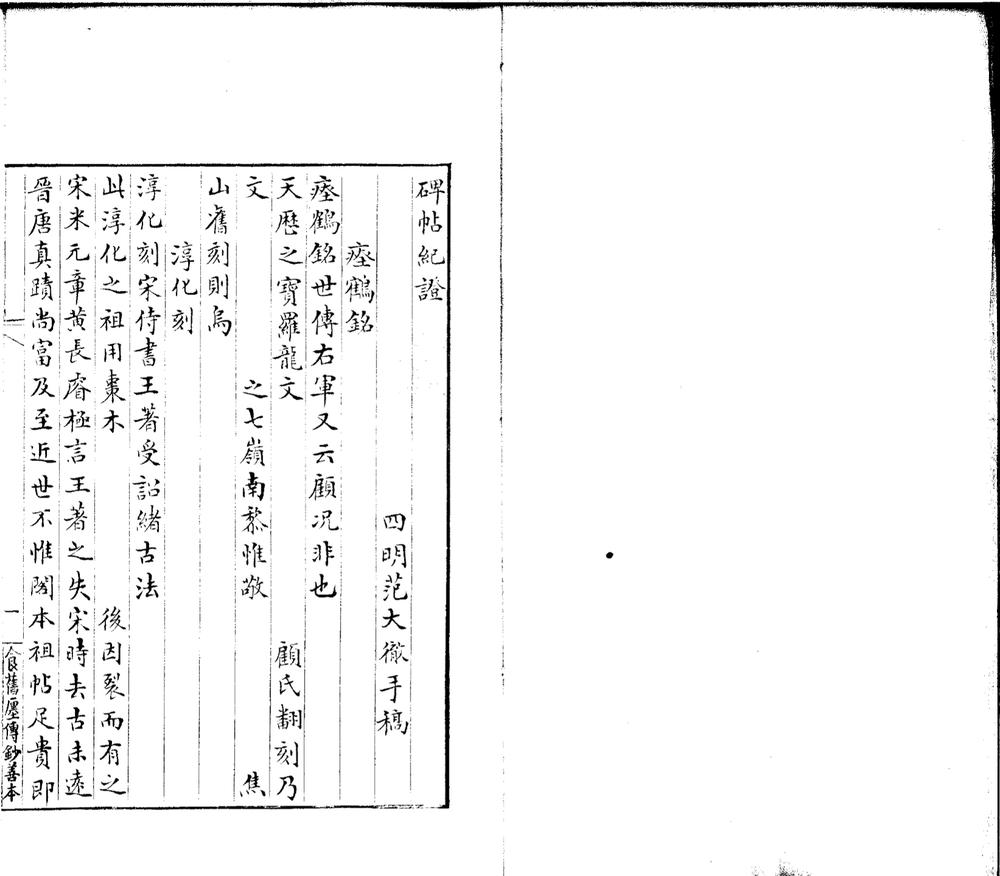 碑帖紀證
四明范大徹手稿
瘞鶴銘
瘞鶴銘世傳右軍又云顧況非也
天歷之寶羅龍文 顧氏翻刻乃
文 之七嶺南黎惟敬 焦
山舊刻則烏
淳化刻
淳化刻宋侍書王著受詔緒古法
此淳化之祖用棗木 後因裂而有之
宋米元章黄長睿極言王著之失宋時去古未遠
晉唐真蹟尚富及至近世不惟閣本祖帖足貴即
一
食舊廛傳鈔善本